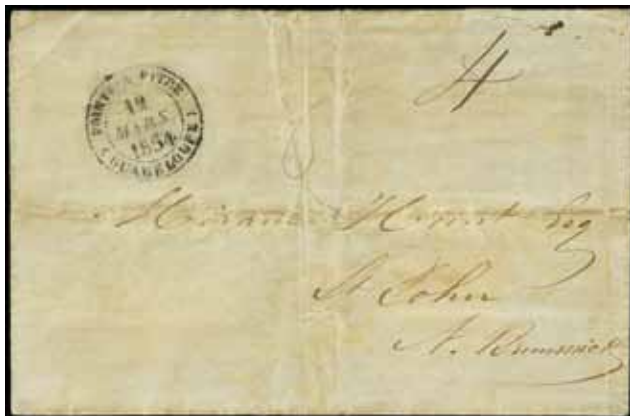 POINTE A PITRE
12
MARS
1854
(GUADELOUPE)
4
Esq
St John
N. Brunswick